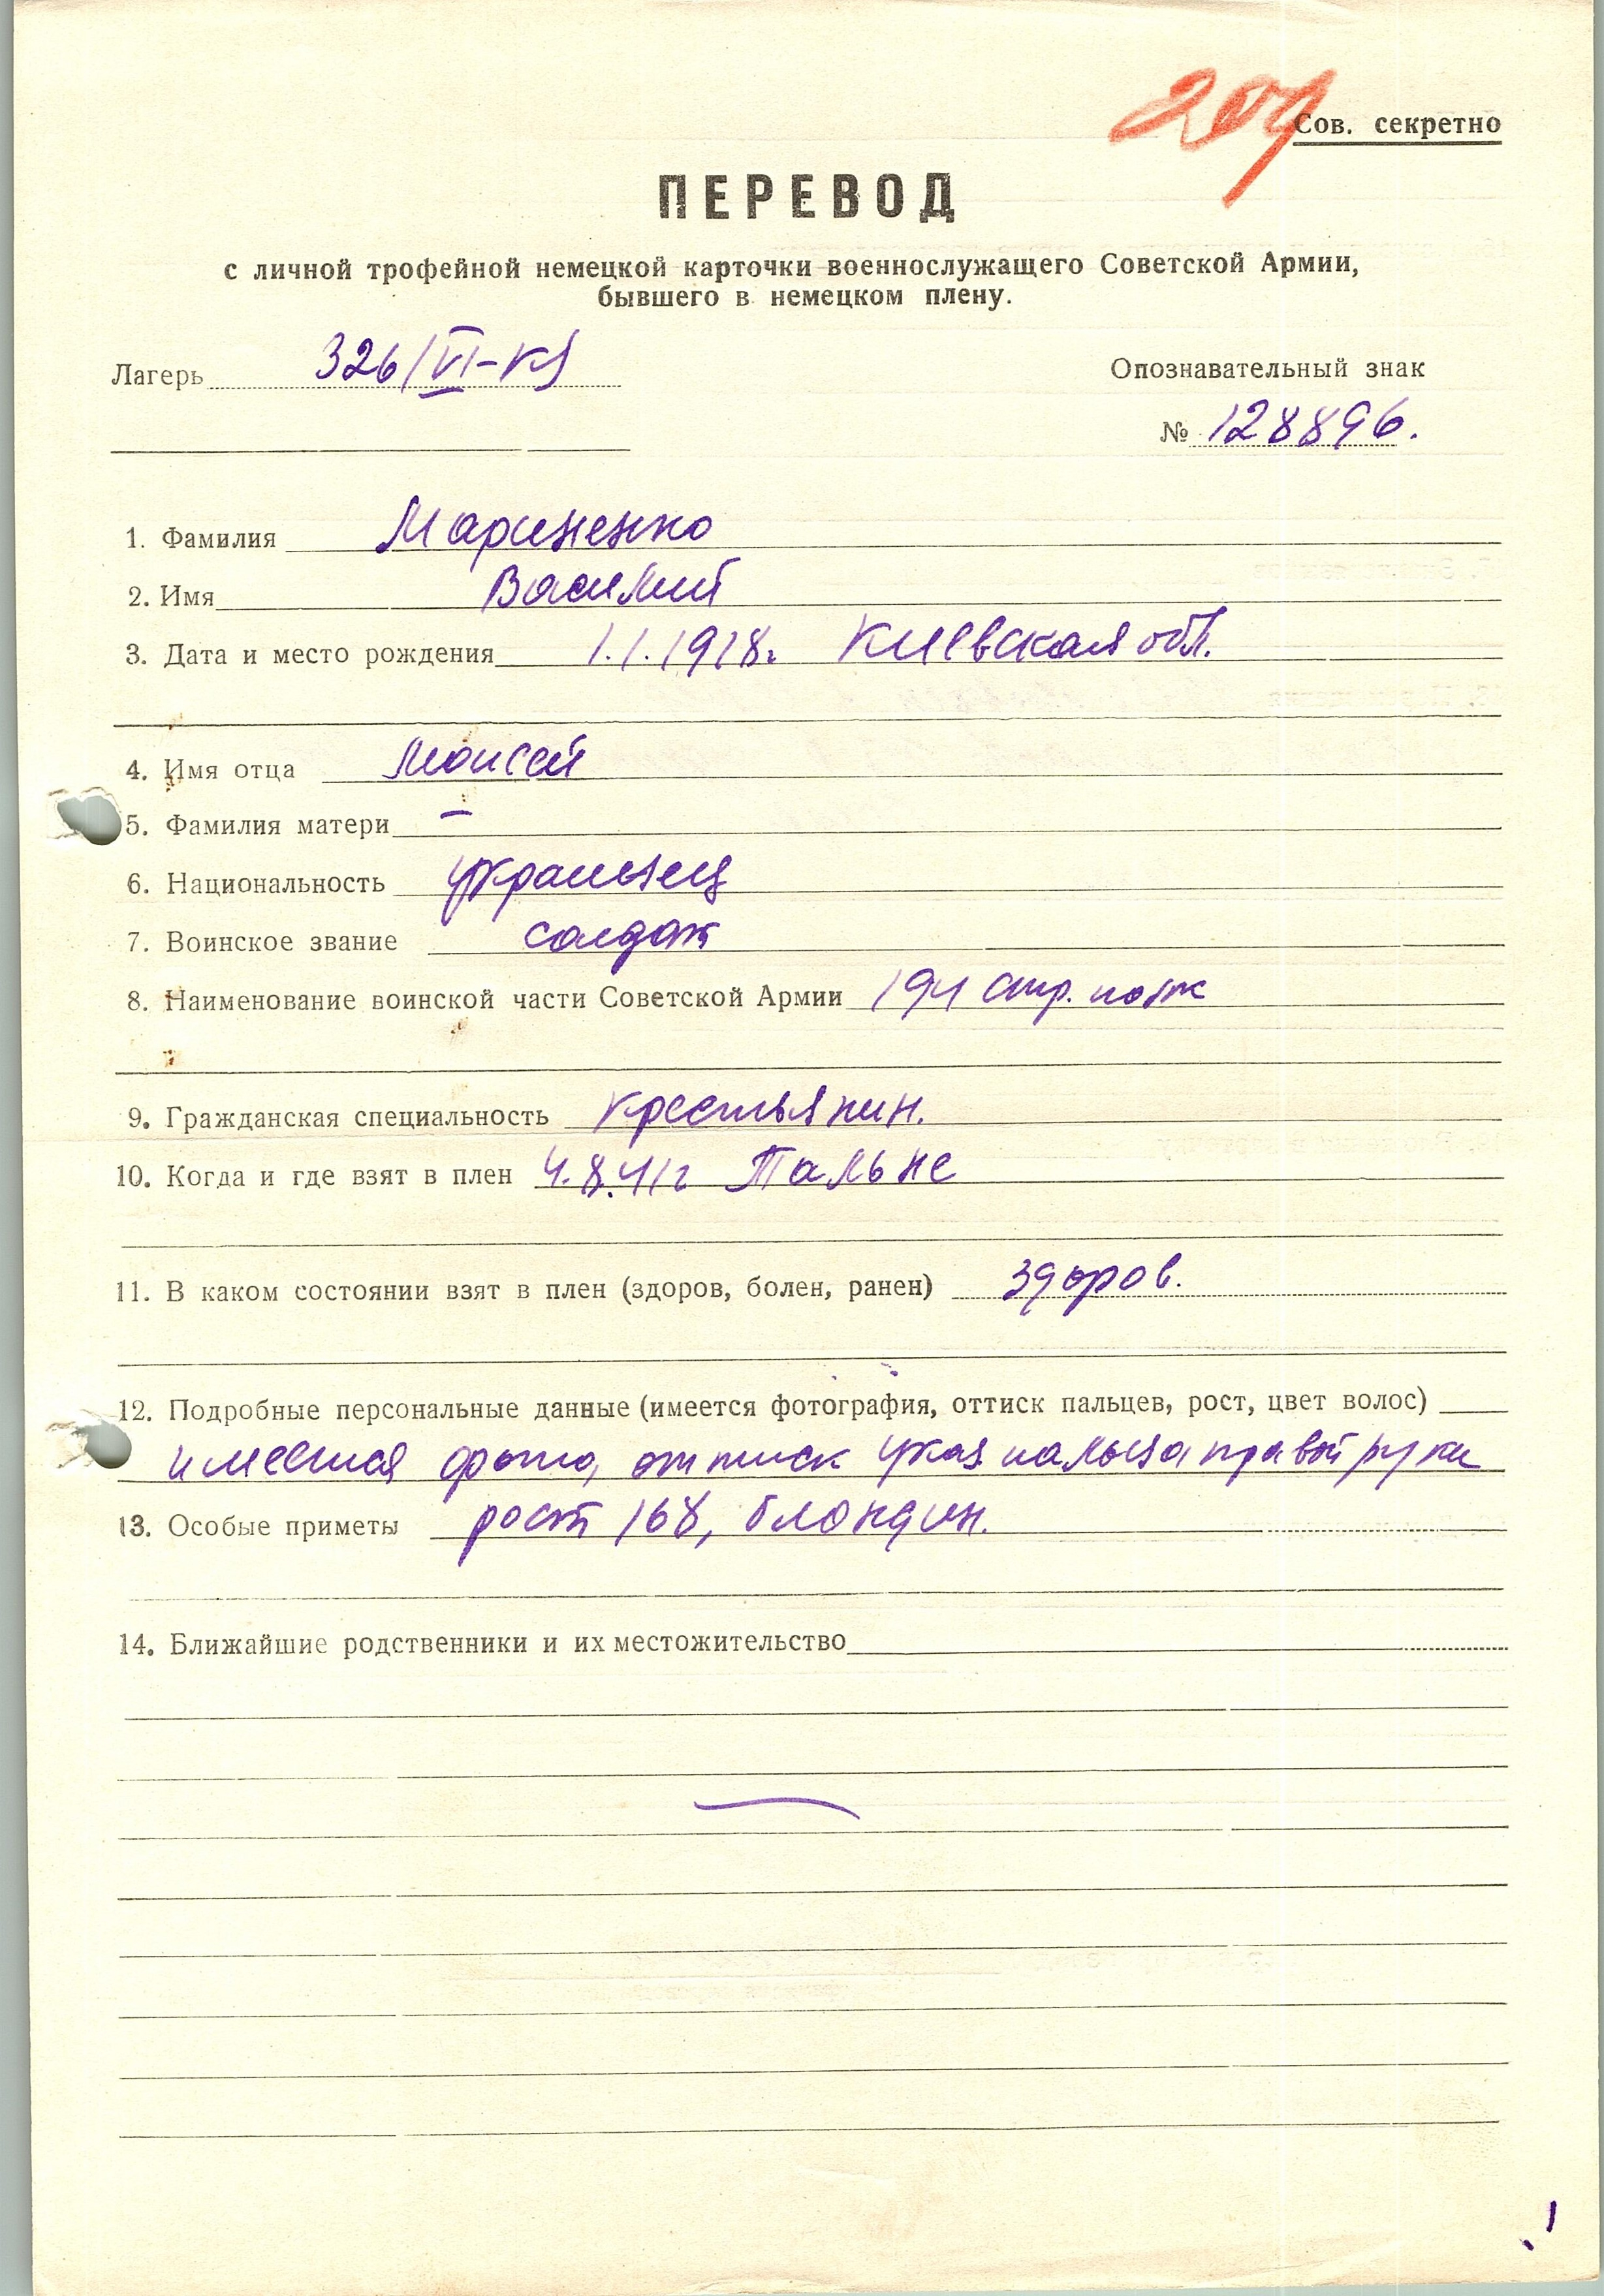 209
Сов. секретно
ПЕРЕВОД
с личной трофейной немецкой карточки военнослужащего Советской Армии,
бывшего в немецком плену.
Лагерь 326/VI-К
Опознавательный знак
№ 128896.
1. Фамилия Мариненко
2. Имя Василий
3. Дата и место рождения 1.1.1918г. Киевская обл.
4. Имя отца Моисей
5. Фамилия матери –
6. Национальность украинец
7. Воинское звание солдат
8. Наименование воинской части Советской Армии 194 стр. полк
9. Гражданская специальность крестьянин.
10. Когда и где взят в плен 4.8.41г Тальне
11. В каком состоянии взят в плен (здоров, болен, ранен) здоров.
12. Подробные персональные данные (имеется фотография, оттиск пальцев, рост, цвет волос)
имеется фото, оттиск указ пальца правой руки
13. Особые приметы рост 168, блондин.
14. Ближайшие родственники и их местожительство